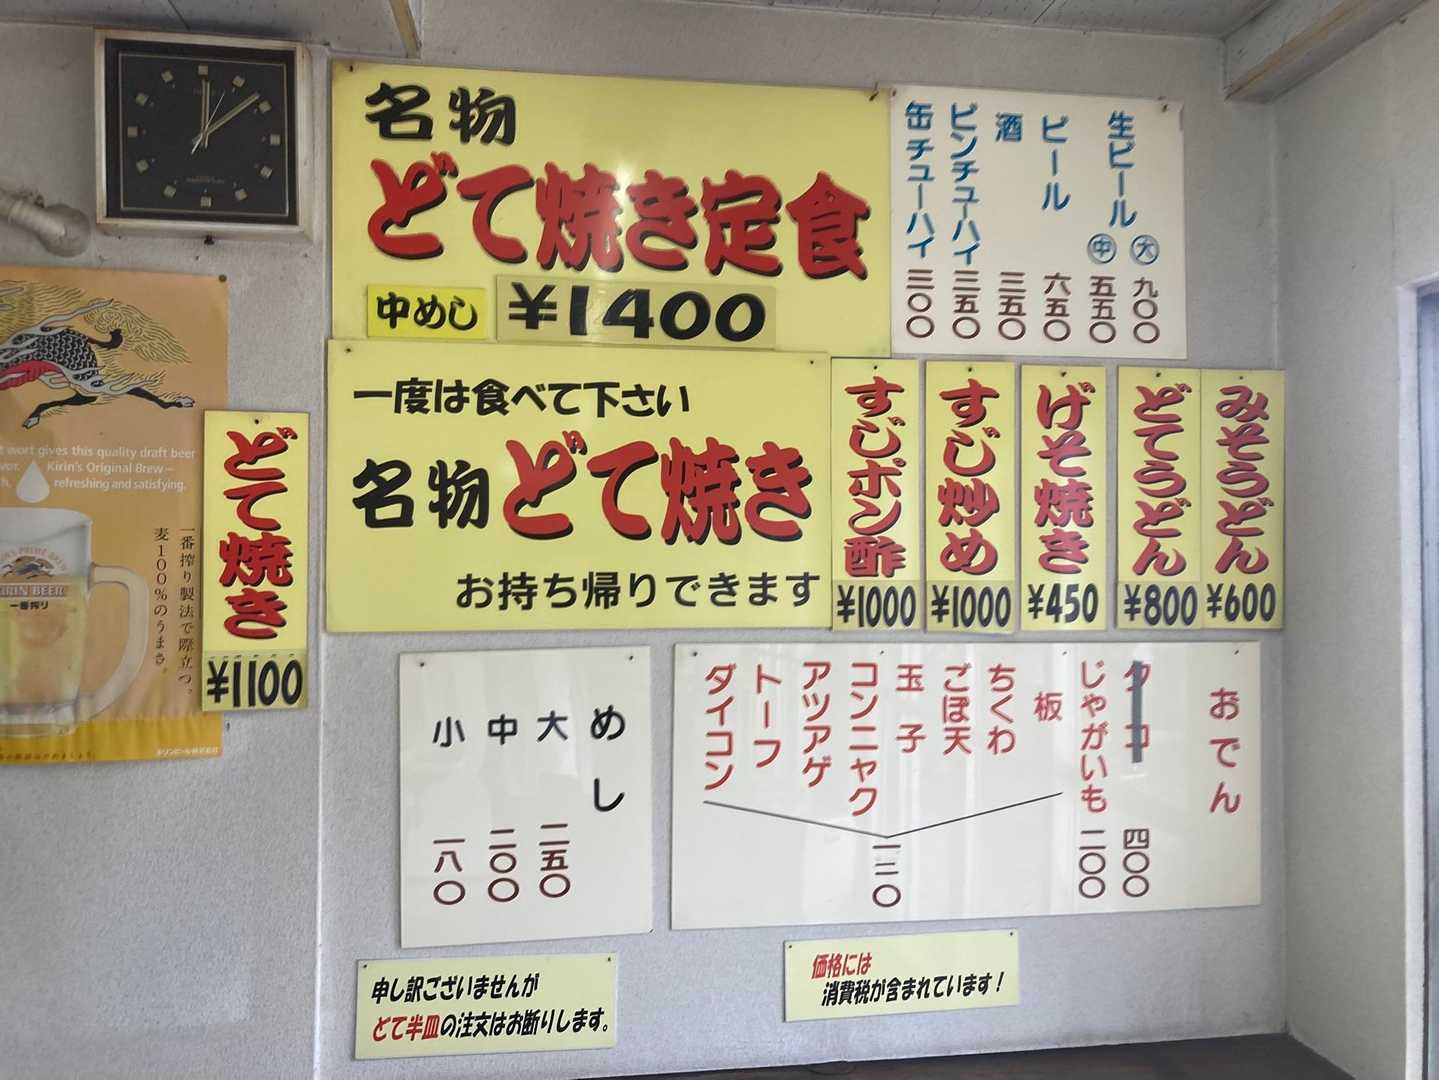 名物
どて焼き定食
中めし ¥1400
生ビール
大 九〇〇
中 五五〇
ビール 六五〇
酒 三五〇
ビンチューハイ 三五〇
缶チューハイ 三〇〇
一度は食べて下さい
名物 どて焼き
お持ち帰りできます
みそうどん ¥600
どてうどん ¥800
げそ焼き ¥450
すじ炒め ¥1000
すじポン酢 ¥1000
どて焼き ¥1100
wort gives this quality draft beer
Kirin's Original Brew–
refreshing and satisfying.
一番搾り製法で際立つ。
麦100%のうまさ。
KIRIN BEER
一番搾り
キリンビール株式会社
おでん
タコ 四〇〇
じゃがいも 二〇〇
板
ちくわ
ごぼ天
玉子
コンニャク
アツアゲ
トーフ
ダイコン
一三〇
めし
大 二五〇
中 二〇〇
小 一八〇
申し訳ございませんが
どて半皿の注文はお断りします。
価格には
消費税が含まれています!